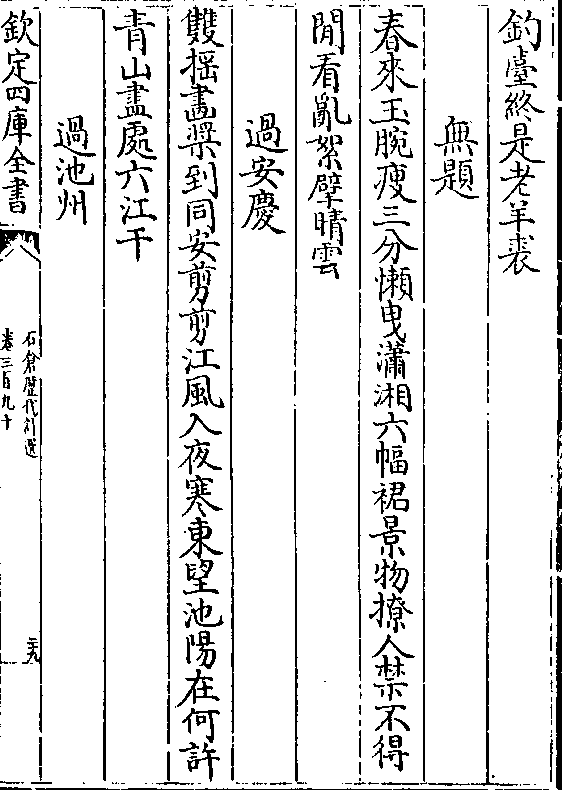 釣臺終是老羊裘
無題
春來玉腕瘦三分懶曳瀟湘六幅裙景物撩人禁不得
閒看亂絮擘晴雲
過安慶
雙揺畫槳到同安剪剪江風入夜寒東望池陽在何許
青山盡處六江干
過池州
欽定四庫全書
石倉歷代詩選
卷三百九十
二十九